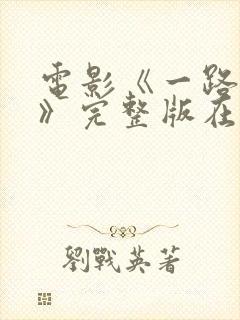 電影《一路
》完整版在
劉戰英著